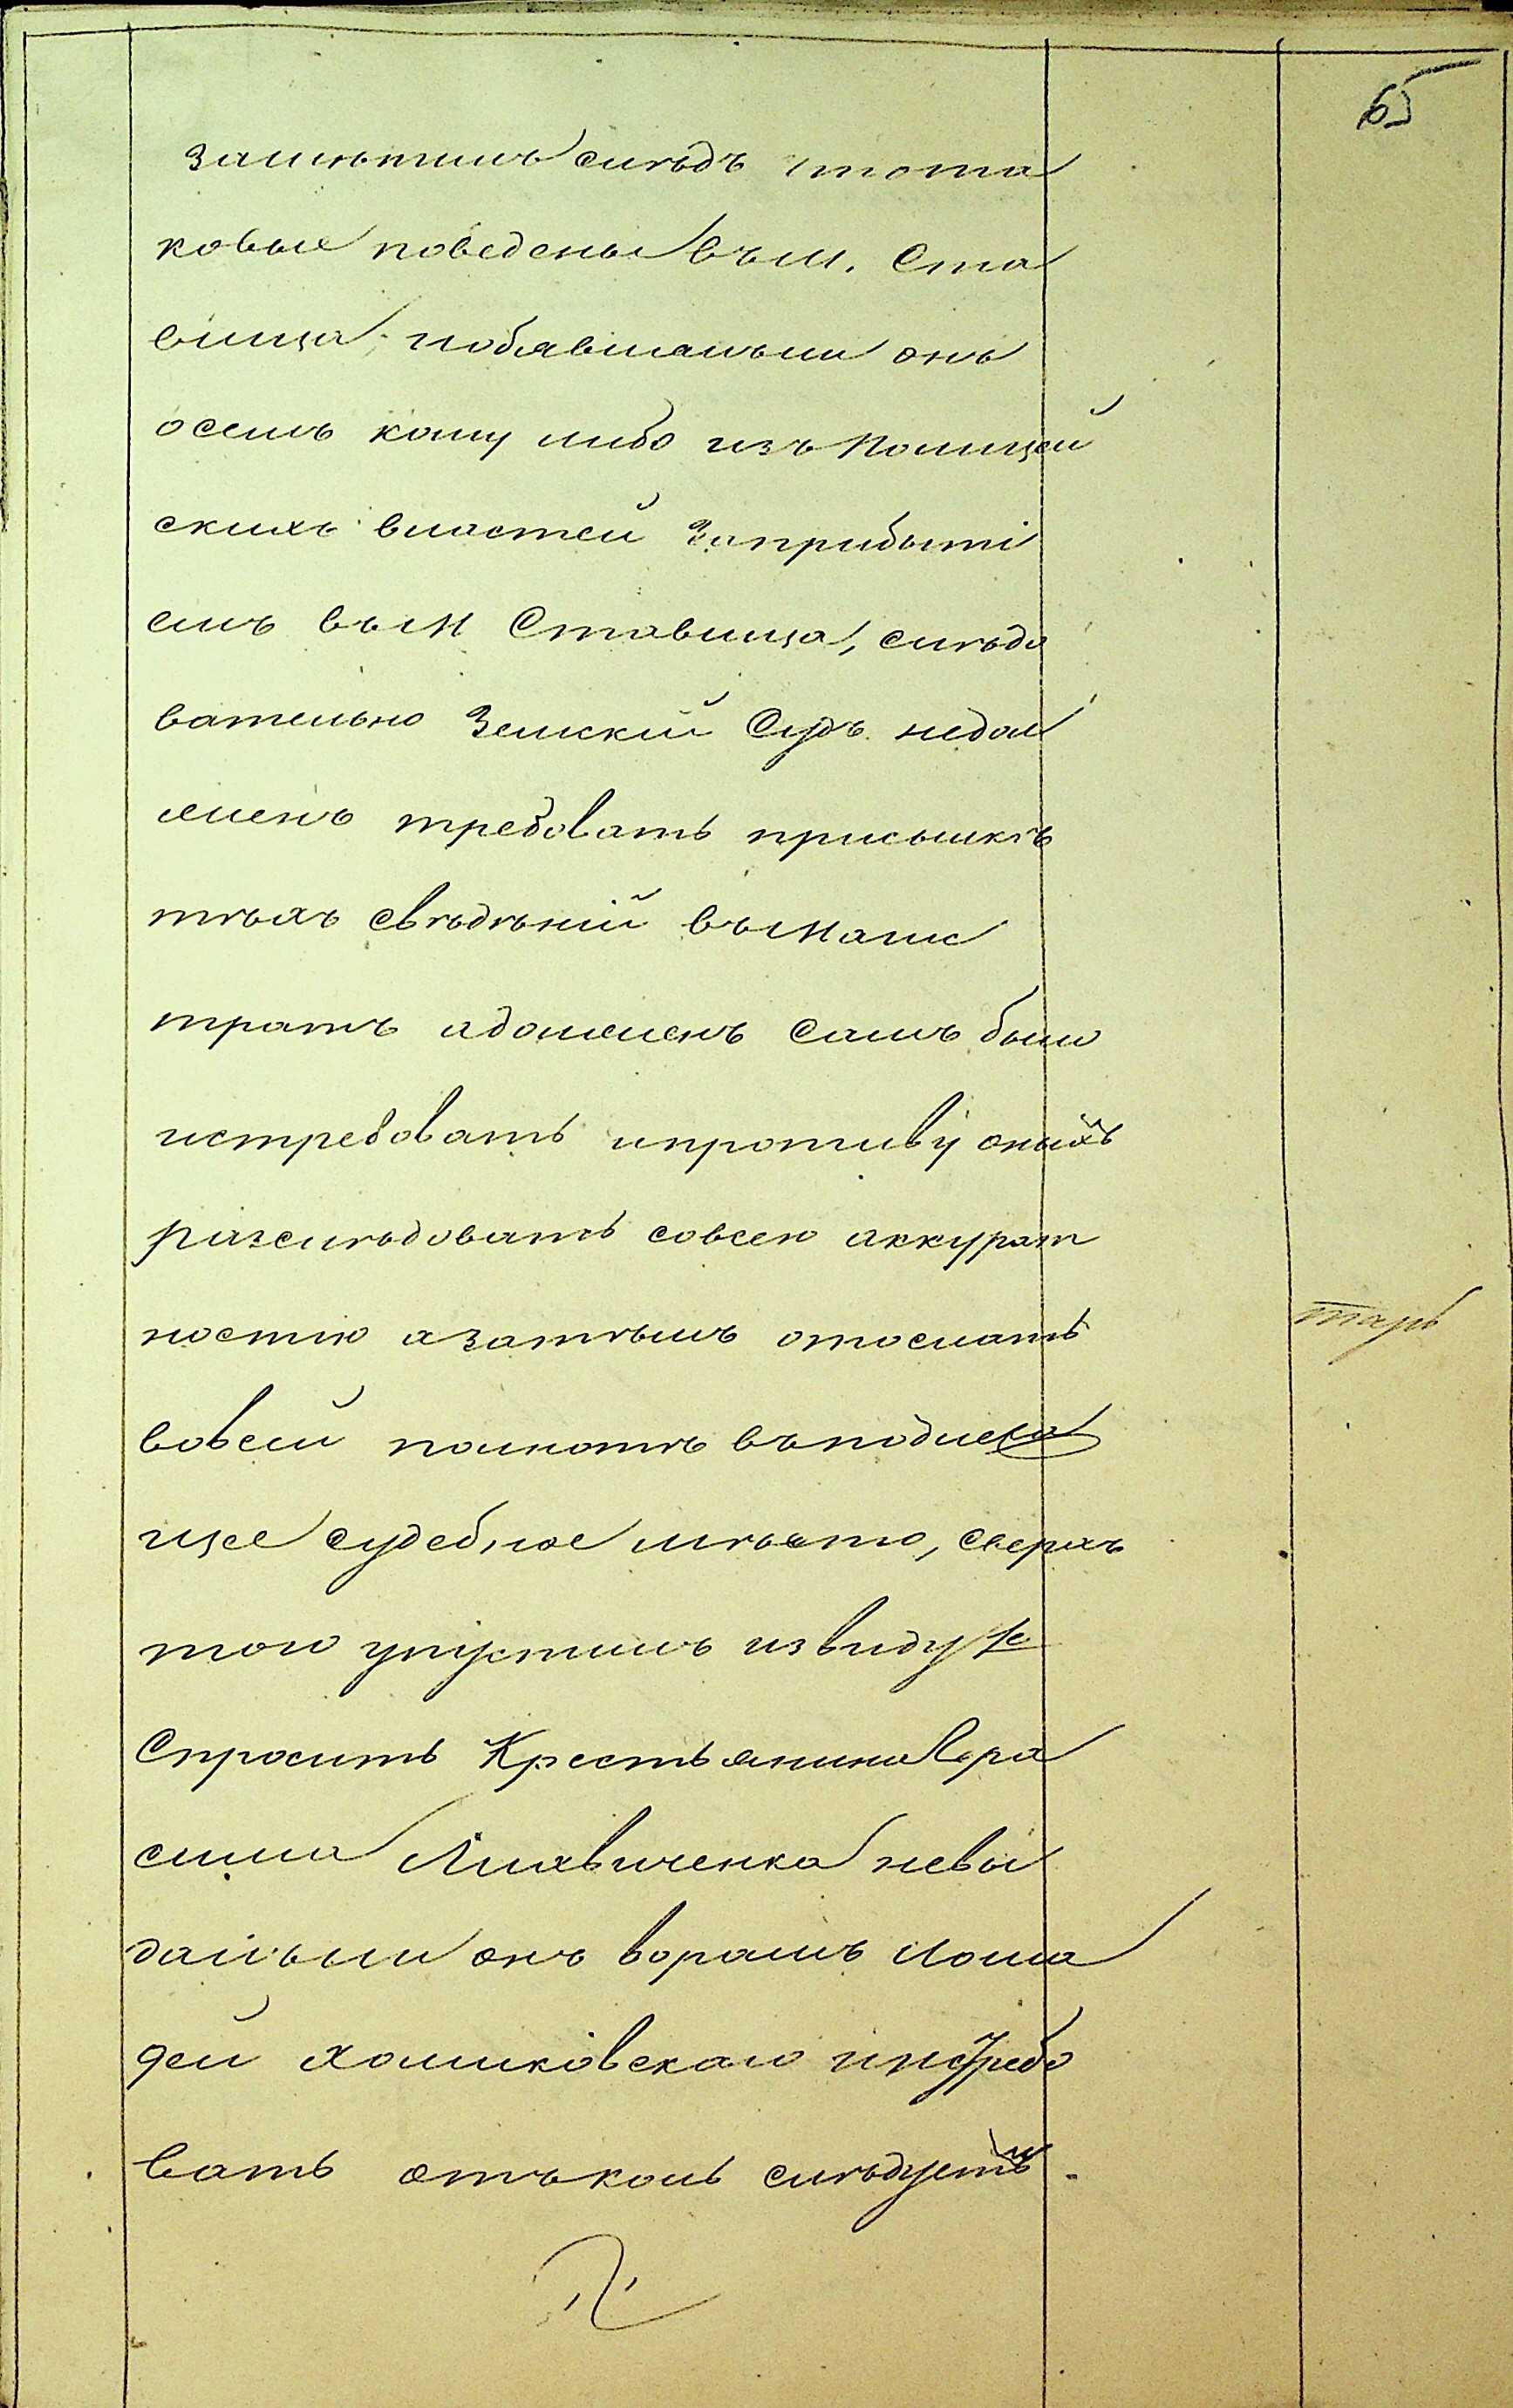 65
замѣтилъ слѣдъ что та
ковые поведены въ м. Ста
вища, необъявлялъ ли онъ
о семъ кому либо изъ Полицей
скихъ властей за прибыті
емъ въ м Ставища, слѣдо
вательно Земскій Судъ недол
женъ требовать присылкѣ
тѣхъ свѣдѣній въ Магис
тратъ а долженъ самъ было
истребовать и противу оныхъ
разслѣдовать со всею аккурат
ностію а затѣмъ отослать
во всей полнотѣ въ подлежа
щее судебное мѣсто, сверхъ
того упустилъ изъ виду /:
Спросить Крестьянина Гера
сима Лихвиченка невы
далъ ли онъ ворамъ Лоша
дей Холмковскаго и истребо
вать отъ коль слѣдуетъ.
тарь